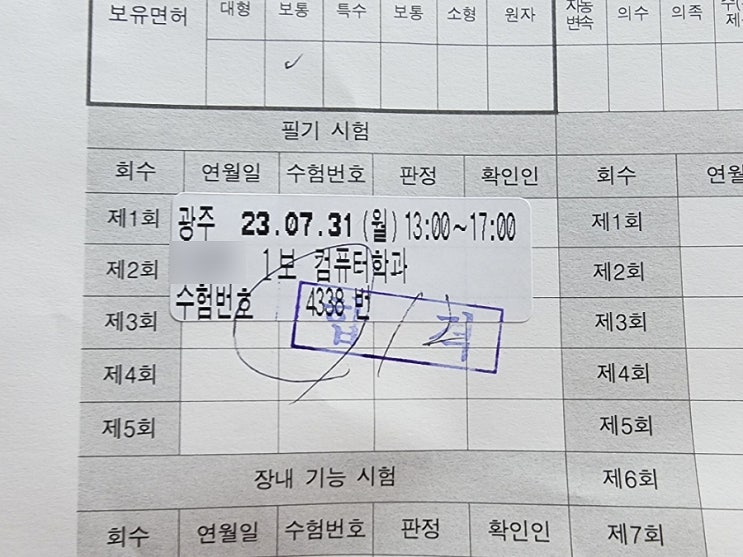 보유면허 대형 보통 특수 보통 소형 원자 자동변속 의수 의족
✓
필기 시험
회수 연월일 수험번호 판정 확인인 회수
제1회 광주 23.07.31 (월) 13:00~17:00 제1회
제2회 1보 컴퓨터학과 제2회
제3회 수험번호 4338 번 제3회
합격
제4회 제4회
제5회 제5회
장내 기능 시험 제6회
회수 연월일 수험번호 판정 확인인 제7회